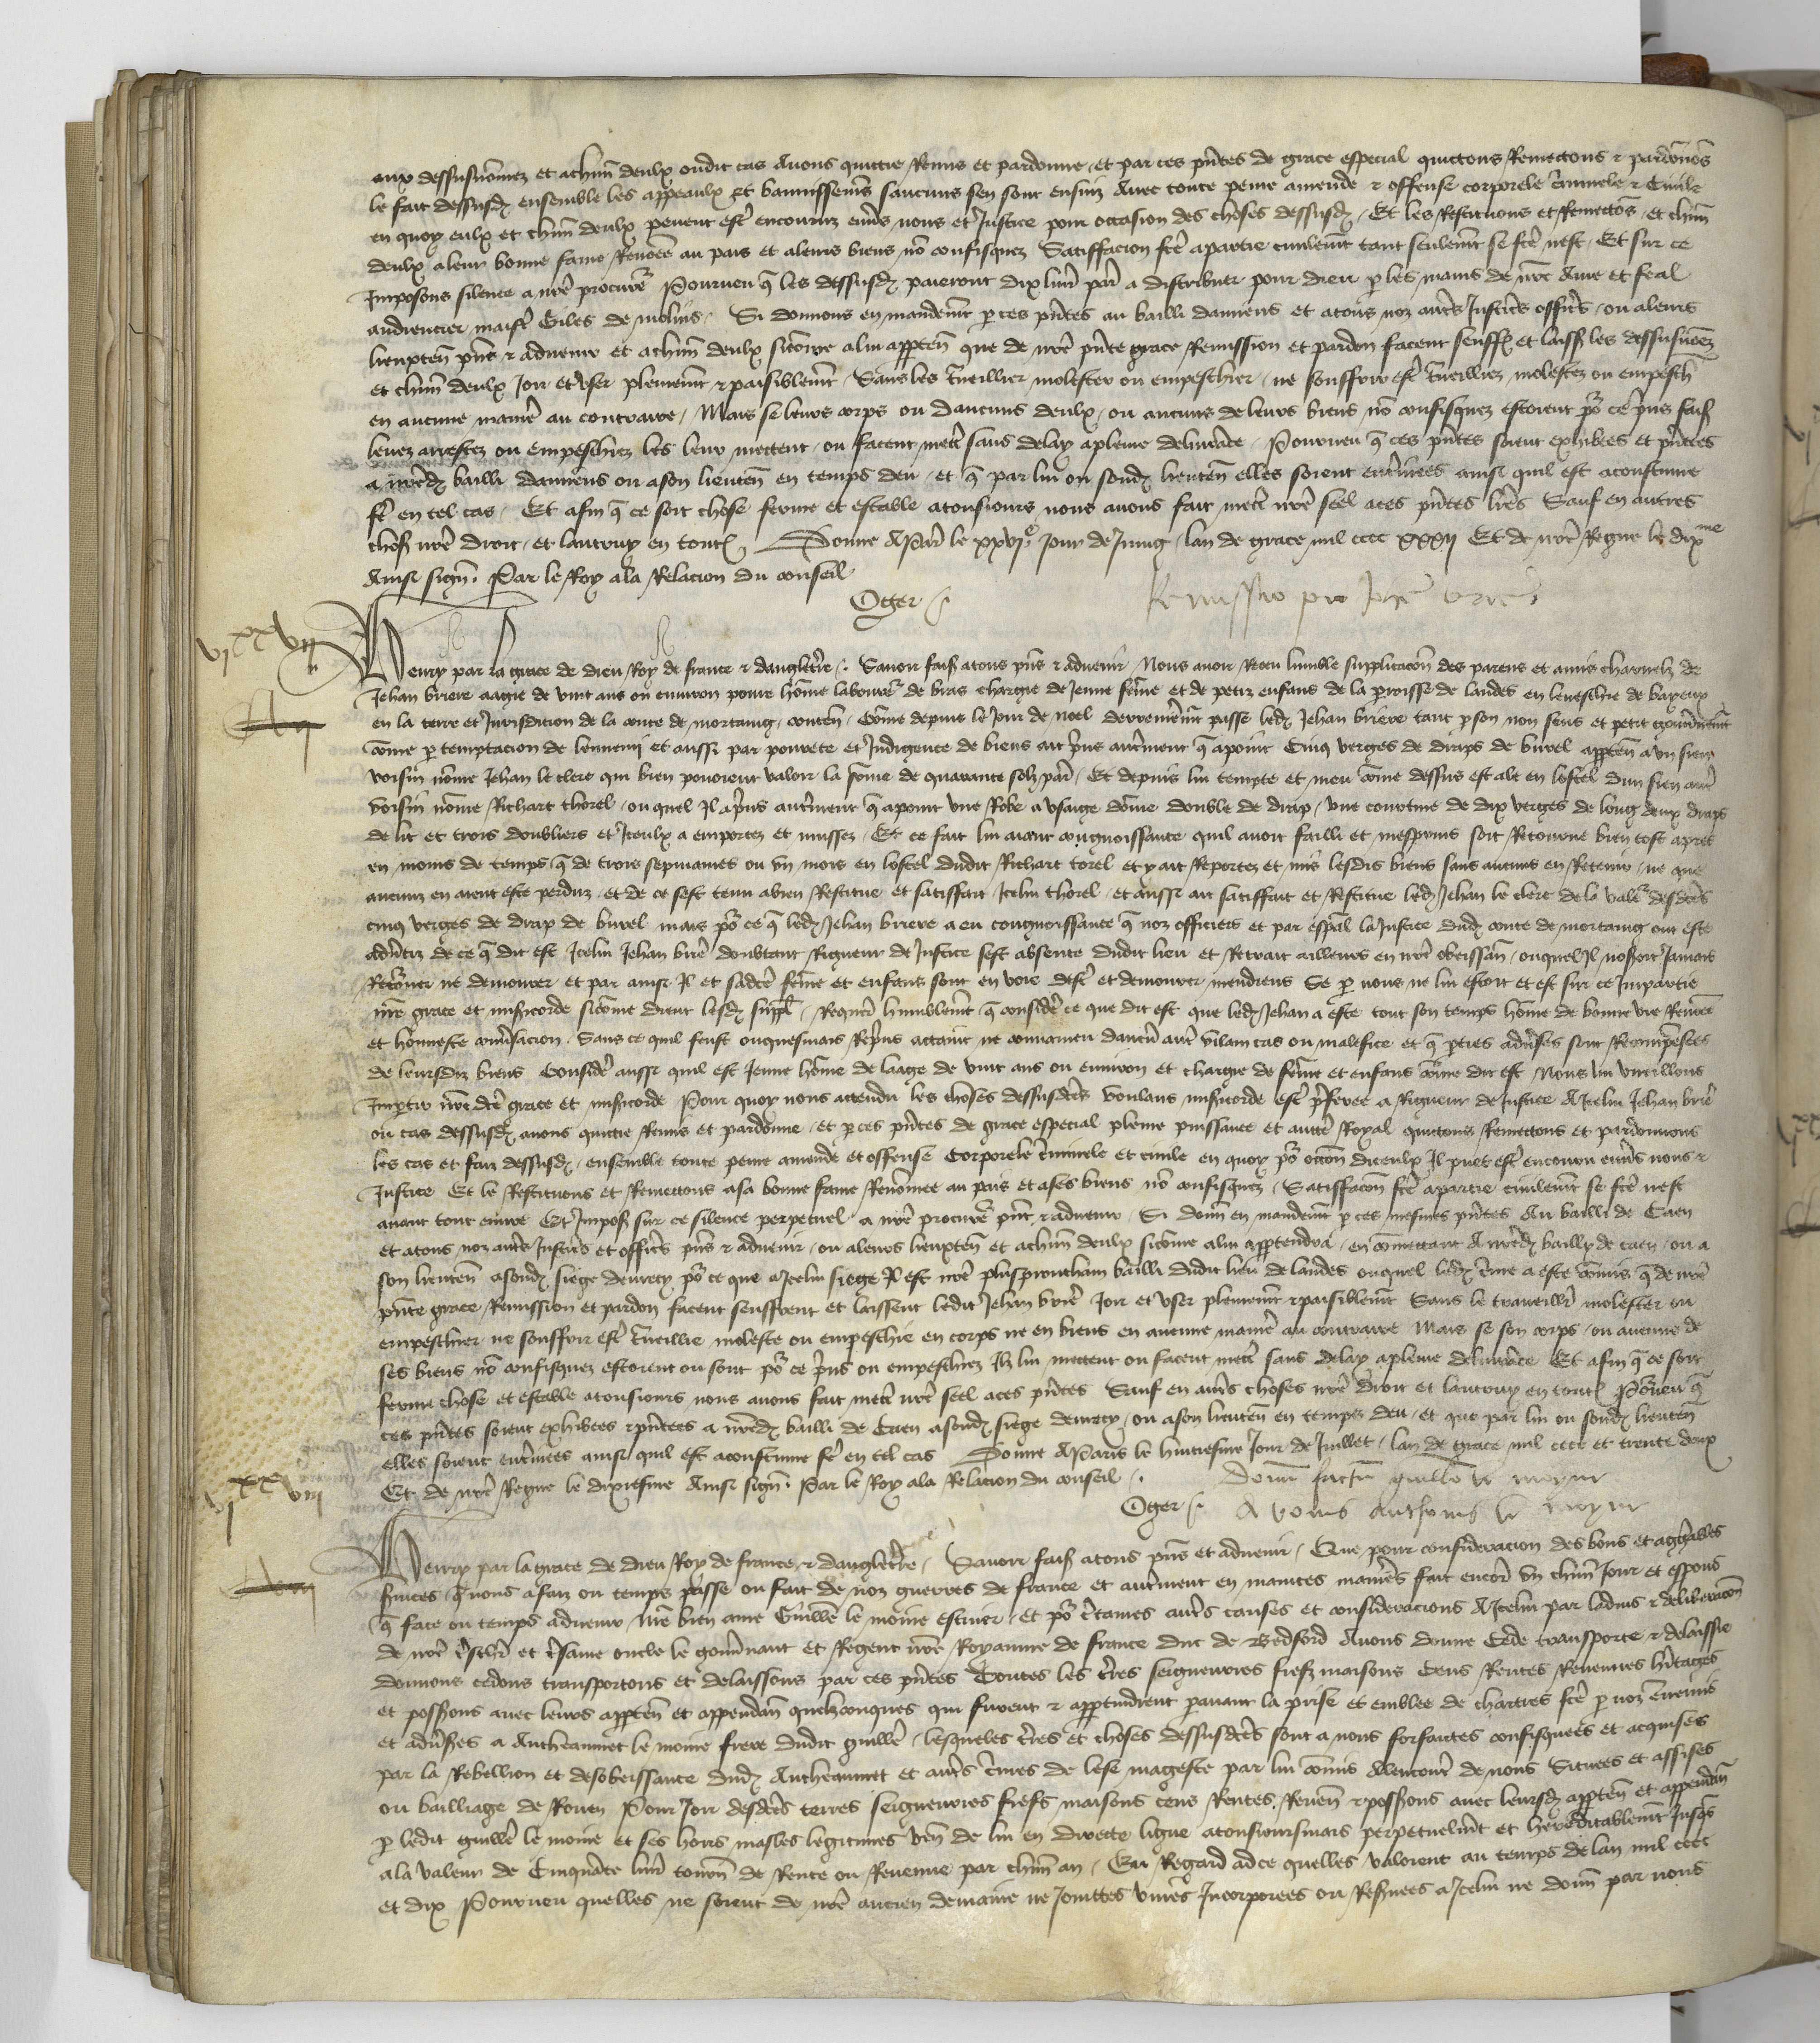 aux dessusnõmez et achũn deulx oudit cas Avons quittie Remis et pardonne et par ces pñtes de grace especial quittons Remettons & pardonnõs
le fait dessusd ensemble les appeaulx et bannissemẽs saucuns sen sont ensuiz Avec toute peine amende & offense corporele c'iminele & Civile
en quoy eulx et chũn deulx peuent est' encouruz env's nous et Justice pour occasion des choses dessusd Et les Restituons et Remettõs et chũn
deulx a leur bonne fame Renõee au pais et a leurs biens nõ confisquez Satisfacion fc'e a partie civilemẽt tant seulemẽt se fc'e nest Et sur ce
Imposons silence a nr'e procur' Pourveu q les dessusd paieront dix livr' par' a distribuer pour dieu p les mains de nr'e Ame et feal
audiencier maist' Giles de molins Si donnons en mandemẽt p ces pñtes au bailli damiens et a tous noz autr's Justic's offic's ou a leurs
lieuxten p'ns & advenir et a chũn deulx sicõme a lui apptẽn que de nr'e pñte grace Remission et pardon facent seuff et laiss les dessusnõez
et chũn deulx Joir et User plenemẽt & paisiblemẽt Sans les t'veillier molester ou empeschier ne souffrir est' t'veilliez molestez ou empesch
en aucune manie' au contraire Mais se leurs corps ou daucuns deulx ou aucuns de leurs biens nõ confisquez estoient põ ce p'ns sais
levez arrestez ou empeschiez les leur mettent ou facent mett' sans delay a pleine delivrãce Pourveu q ces pñtes soient exhibees et pñtees
a nr'ed bailli damiens ou a son lieutẽn en temps deu et q par lui ou sond lieutẽn elles soient ent'inees ainsi quil est acoustume
fe' en tel cas Et afin q ce soit chose ferme et estable a tousiours nous avons fait mett' nr'e seel a ces pñtes lr'es Sauf en autres
chos nr'e droit et lautruy en tout Donne A Par' le xxvj.e Jour de Juing lan de grace mil cccc xxxij Et de nr'e Regne le dix me
Ainsi sign. Par le Roy a la Relacion du conseil
Oger Remissio pro Joh'e briere
vi xx vii
Henry par la grace de dieu Roy de france & dangleterre. Savoir fais a tous p'ns & advenir Nous avoir Receu humble supplicacõn des parens et amis charnelz de
Jehan briere aagie de vint ans ou environ povre hõme laboure' de bras chargie de Jeune fẽme et de petiz enfans de la p'oisse de landes en leveschie de bayeux
en la terre et Jurisdicion de la conte de mortaing conten Cõme depuis le Jour de noel derrenieremẽt passe led Jehan briere tant p son non sens et petit gouv'nemẽt
cõme p temptacion de lennemi et aussi par povrete et Indigence de biens ait p'ns autrement q a point Cinq verges de draps de burel apptẽn a un sien
voisin nõme Jehan le clerc qui bien povoient valoir la sõme de quarante solz par' Et depuis lui tempte et meu cõme dessus est ale en lostel dun sien autr'
voisin nõme Richart thorel ou quel Il a p'ns autrement q a point une Robe a usaige dõme double de drap une courtine de dix verges de long deux draps
de lit et trois doubliers et Iceulx a emportez et mussez Et ce fait lui aiant congnoissance quil avoit failli et mesprins soit Retourne bien tost apres
en moins de temps q de trois sepmaines ou un mois en lostel dudit Richart torel et y ait Reportez et mis lesdis biens sans aucuns en Retenir ne que
aucuns en aient este perduz et de ce sest tenu a bien Restitue et satisfait Icelui thorel et aussi ait satisfait et Restitue led Jehan le clerc de la vale' desdc'es
cinq verges de drap de burel mais põ ce q led Jehan briere a eu congnoissance q noz officiers et par esp'al la Justice dud conte de mortaing ont este
adv'tiz de ce q dit est Icelui Jehan bri'e doubtant Rigueur de Justice sest absente dudit lieu et Retrait ailleurs en nr'e obeissãn ouquel Il noseroit Jamais
Retõner ne demourer et par ainsi Il et sadc'e fẽme et enfans sont en voie dest' et demourer mendiens Se p nous ne lui estoit et est sur ce Impartie
nr'e grace et mis'icorde sicõme dient lesd suppl Requer' humblemẽt q consider' ce que dit est que led Jehan a este tout son temps hõme de bonne vie Renõee
et honneste conv'sacion Sans ce quil feust oncquesmais Rep'ns attaint ne convaincu daucũ autr' vilain cas ou malefice et q p'ties adv'ses sont Recompẽsees
de leursdiz biens Consider' aussi quil est Jeune hõme de laage de vint ans ou environ et chargie de fẽme et enfans cõme dit est Nous lui vueillons
Imptir nr'e dc'e grace et mis'icorde Pour quoy nous attendu les choses dessusdc'es voulans mis'icorde est' p'feree a Rigueur de Justice A Icelui Jehan bri'e
ou cas dessusd avons quittie Remis et pardonne et p ces pñtes de grace especial pleine puissance et autte' Royal quittons Remettons et pardonnons
les cas et faiz dessusd ensemble toute peine amende et offense Corporele c'iminele et civile en quoy põ occõn diceulx Il puet est' encouru env's nous &
Justice Et le Restituons et Remettons a sa bonne fame Renõmee au pais et a ses biens nõ confisquez Satisfacõn fc'e a partie civilemẽt se fc'e nest
avant tout euvre Et Impos sur ce silence perpetuel a nr'e procure' pñt & advenir Si donn en mandemẽt p ces mesmes pñtes Au bailli de Caen
et a tous noz autr's Justic's et offic's p'ns & advenir ou a leurs lieuxtẽn et a chũn deulx sicõme a lui apptendra en cõmettant A nr'ed bailly de caen ou a
son lieutẽn a sond siege de vire põ ce que a Icelui siege Il est nr'e plus prouchain bailli dudit lieu de landes ouquel led c'ime a este cõmis q de nr'e
pñte grace Remission et pardon facent seuffrent et laissent ledit Jehan bri'e Joir et User plenemẽt & paisiblemẽt Sans le traveill' molester ou
empeschier ne souffrir est' t'veillie moleste ou empeschie en corps ne en biens en aucune manie' au contraire Mais se son corps ou aucune de
ses biens nõ confisquez estoient ou sont põ ce p'ns ou empeschiez Ilz lui mettent ou facent mett' sans delay a pleine delivrãce Et afin q ce soit
ferme chose et estable a tousiours nous avons fait mett' nr'e seel a ces pñtes Sauf en autr's choses nr'e droit et lautruy en tout Põrveu q
ces pñtes soient exhibees & pñtees a nr'ed bailli de Caen a sond siege de vire ou a son lieutẽn en temps deu et que par lui ou sond lieutẽn
elles soient ent'inees ainsi quil est acoustume fe' en tel cas Donne A Paris le huitiesme Jour de Juillet lan de grace mil cccc et trente deux
Et de nr'e Regne le dixiesme Ainsi sign. Par le Roy a la Relacion du conseil. Donũ factũ guill'o le moyne
Oger
vi xx viii
Henry par la grace de dieu Roy de france & dangleterre Savoir fais a tous p'ns et advenir Que pour consideracion des bons et aggreables
s'vices q nous a faiz ou temps passe ou fait de noz guerres de france et autrement en maintes manie'es fait encor' un chũn Jour et espõns
q face ou temps advenir nr'e bien ame Guille' le moine escuier et põ c'taines autr's causes et consideracions A Icelui par ladvis & deliberacõn
de nr'e t'schr' et t'same oncle le gouv'nant et Regent nr'e Royaume de france duc de Bedford Avons donne Cede transporte & delaissie
donnons cedons transportons et delaissons par ces pñtes Toutes les t'res seigneuries fiefz maisons Cens Rentes Revenues h'itages
et possions avec leurs apptẽn et appendãn quelzconques qui furent & apptindrent p'avant la prise et emblee de chartres fc'e p noz ennemis
et adv'ses a Antheaume le moine frere dudit guille' lesqueles t'res et choses dessusdc'es sont a nous forfaites confisquees et acquises
par la Rebellion et desobeissance dud Antheaume et autr's c'imes de lese mageste par lui cõmis Allencont' de nous Situees et assises
ou bailliage de Rouen Pour Joir desdc'es terres seigneuries fiefs maisons cens Rentes Revẽn & possions avec leursd apptẽn et appendãn
p ledit guille' le moine et ses hoirs masles legitimes vẽn de lui en directe ligne a tousioursmais perpetuelmẽt et hereditablemẽt Jusqs
a la valeur de Cinquãte livr' tourñ de Rente ou Revenue par chũn an Eu Regard ad ce quelles valoient au temps de lan mil cccc
et dix Pourveu quelles ne soient de nr'e ancien demaine ne Joinctes unies Incorporees ou Res'vees a Icelui ne donn par nous